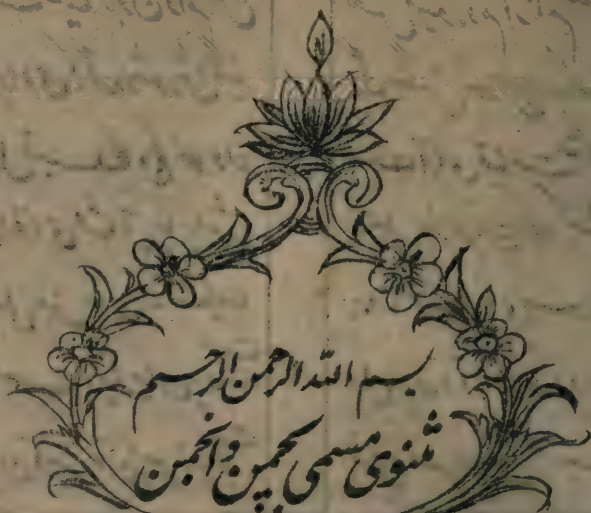 بسم الله الرحمن الرحیم
مثنوی مسمی بچمن وانجمن